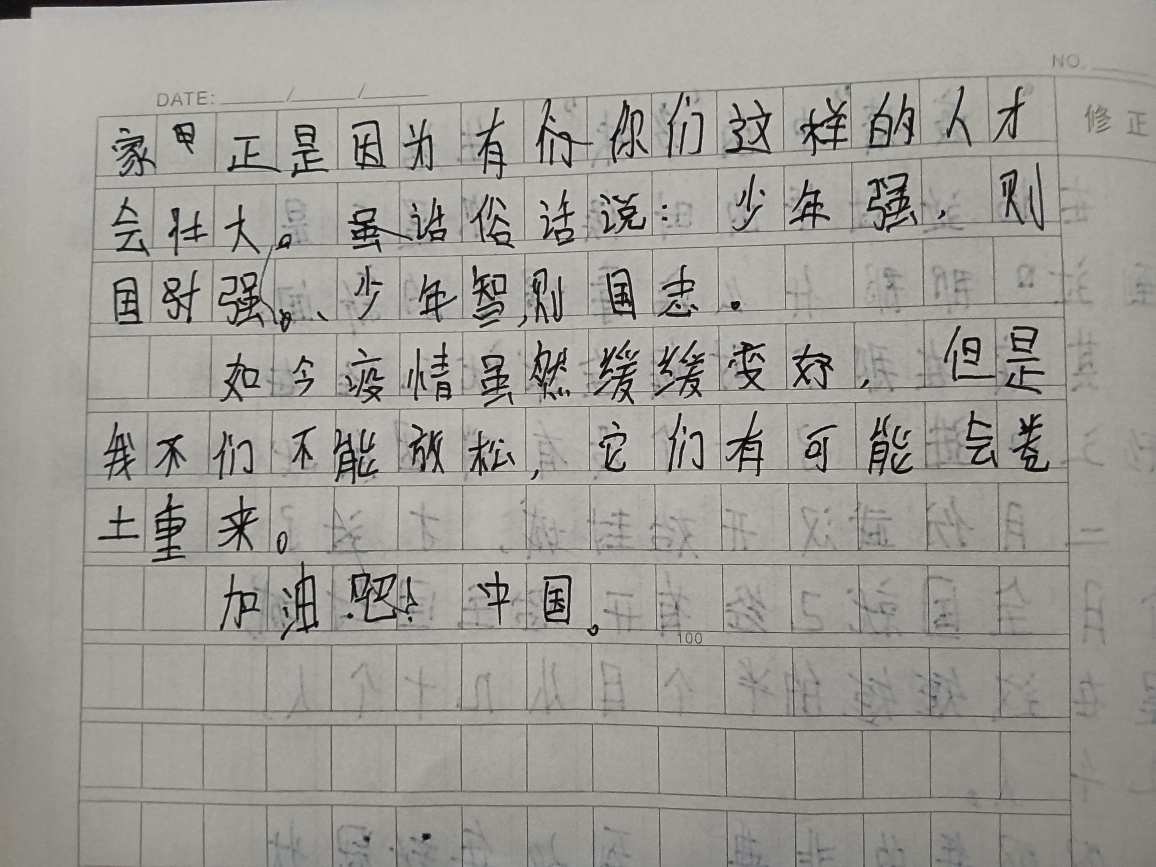 NO.
DATE: / /
修正
家甲正是因为有们你们这样的人才
会壮大。虽诰俗话说：少年强，则
国对强。、少年智,则国志。
如今疫情虽然缓缓变好，但是
我不们不能放松，它们有可能会卷
土重来。
加油吧！中国。
100